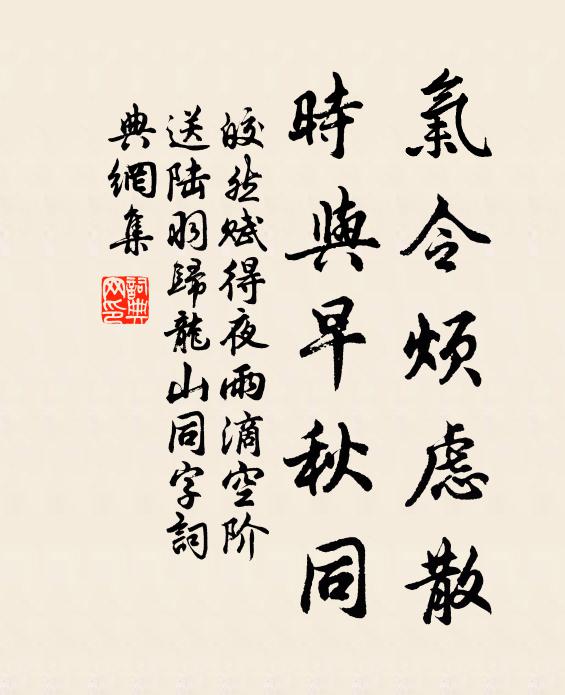 氣令煩慮散
時與早秋同
皎然賦得夜雨滴空阶
送陆羽歸龍山同字詞
典網集
詞典网印